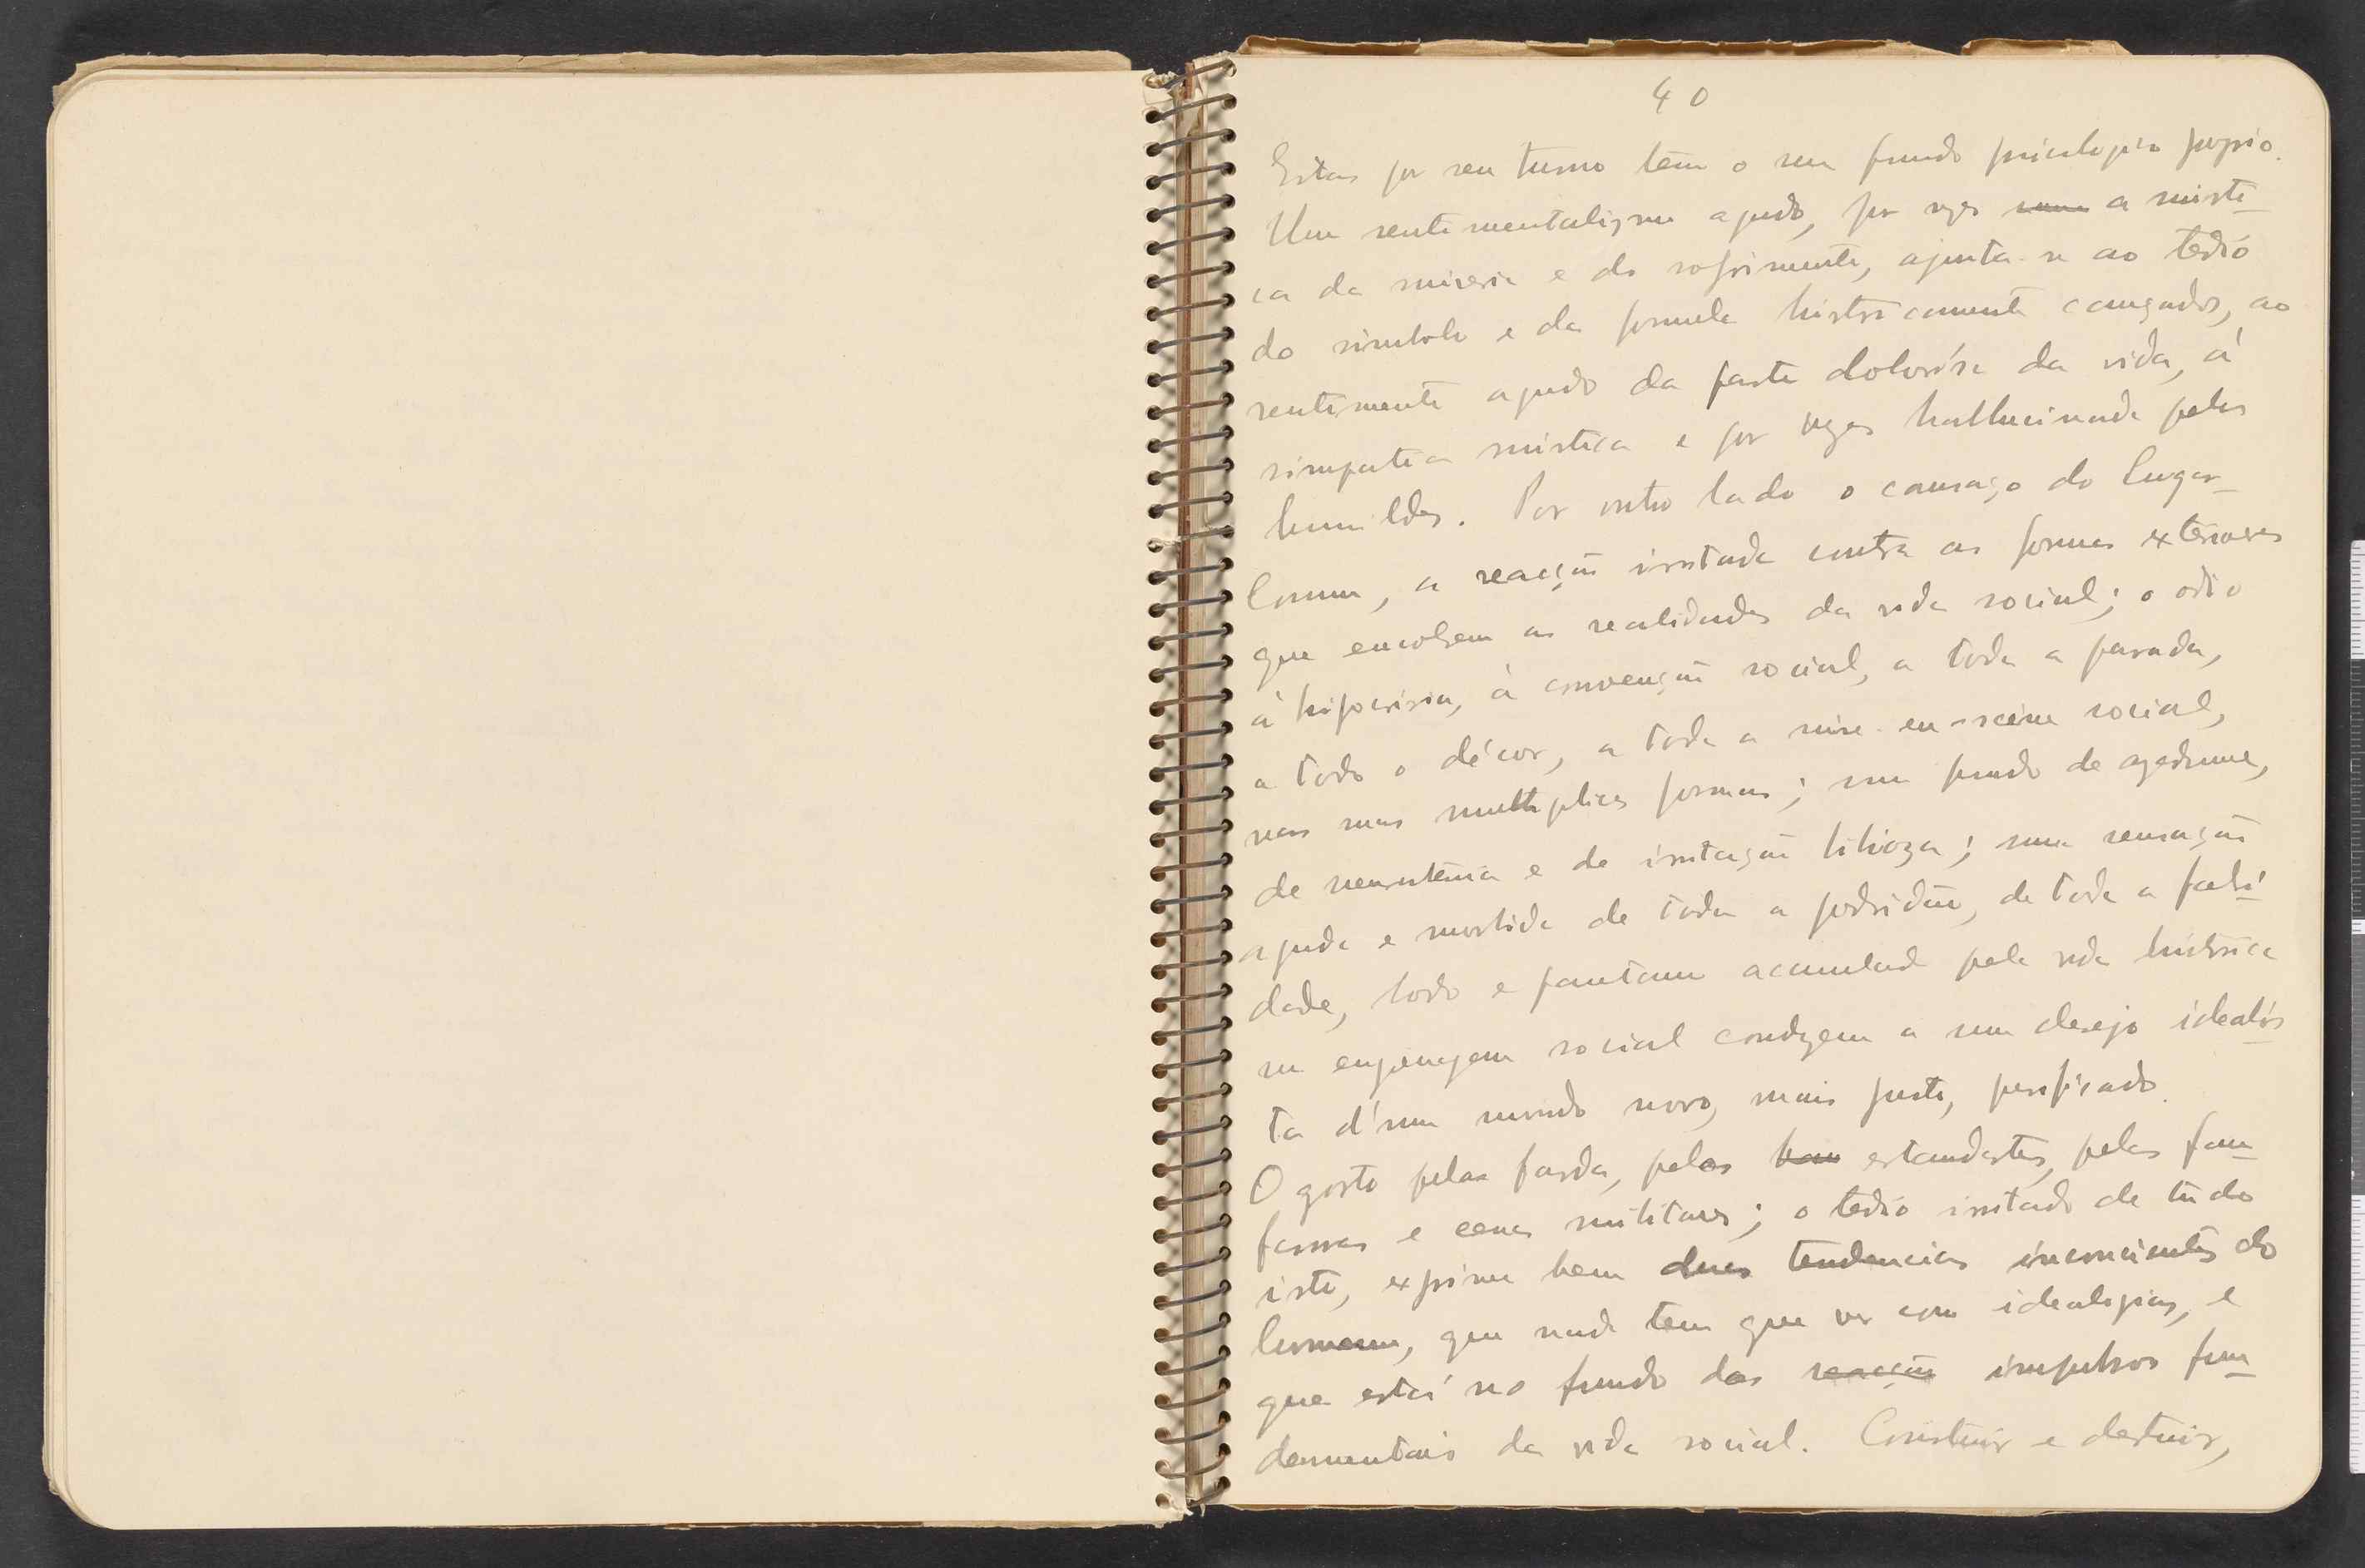 40
Estas por seu turno têm o seu fundo psicologico proprio.
Um sentimentalismo agudo, por vezes a misti-
ca da miseria e do sofrimento, ajunta-se ao tedio
do simbolo e da formula historicamente cançados, ao
sentimento agudo da parte dolorósa da vida, á
simpatia mistica e por vezes hallucinada pelos
humildes. Por outro lado o cansaço do lugar-
comum, a reacção irritada contra as formas exteriores
que envolvem as realidades da vida social; o odio
á hipocrisia, á convenção social, a toda a parada,
a todo o décor, a toda a mise-en-scéne social,
nas suas multiplices formas; um fundo de azedume,
de neurastenia e de irritação bilioza; uma sensação
aguda e morbida de toda a podridão, de toda a falsi-
dade, lodo e fantasma acumulado pela vida historica
na engrenagem social conduzem a um desejo idealis-
ta d'um mundo novo, mais justo, purificado.
O gosto pelas fardas, pelos estandartes, pelas fan-
farras e cenas militares; o tedio irritado de tudo
isto, exprime bem duas tendencias inconscientes do
homem, que nada tem que ver com ideologias, e
que está no fundo dos impulsos fun-
damentais da vida social. Construir e destruir,